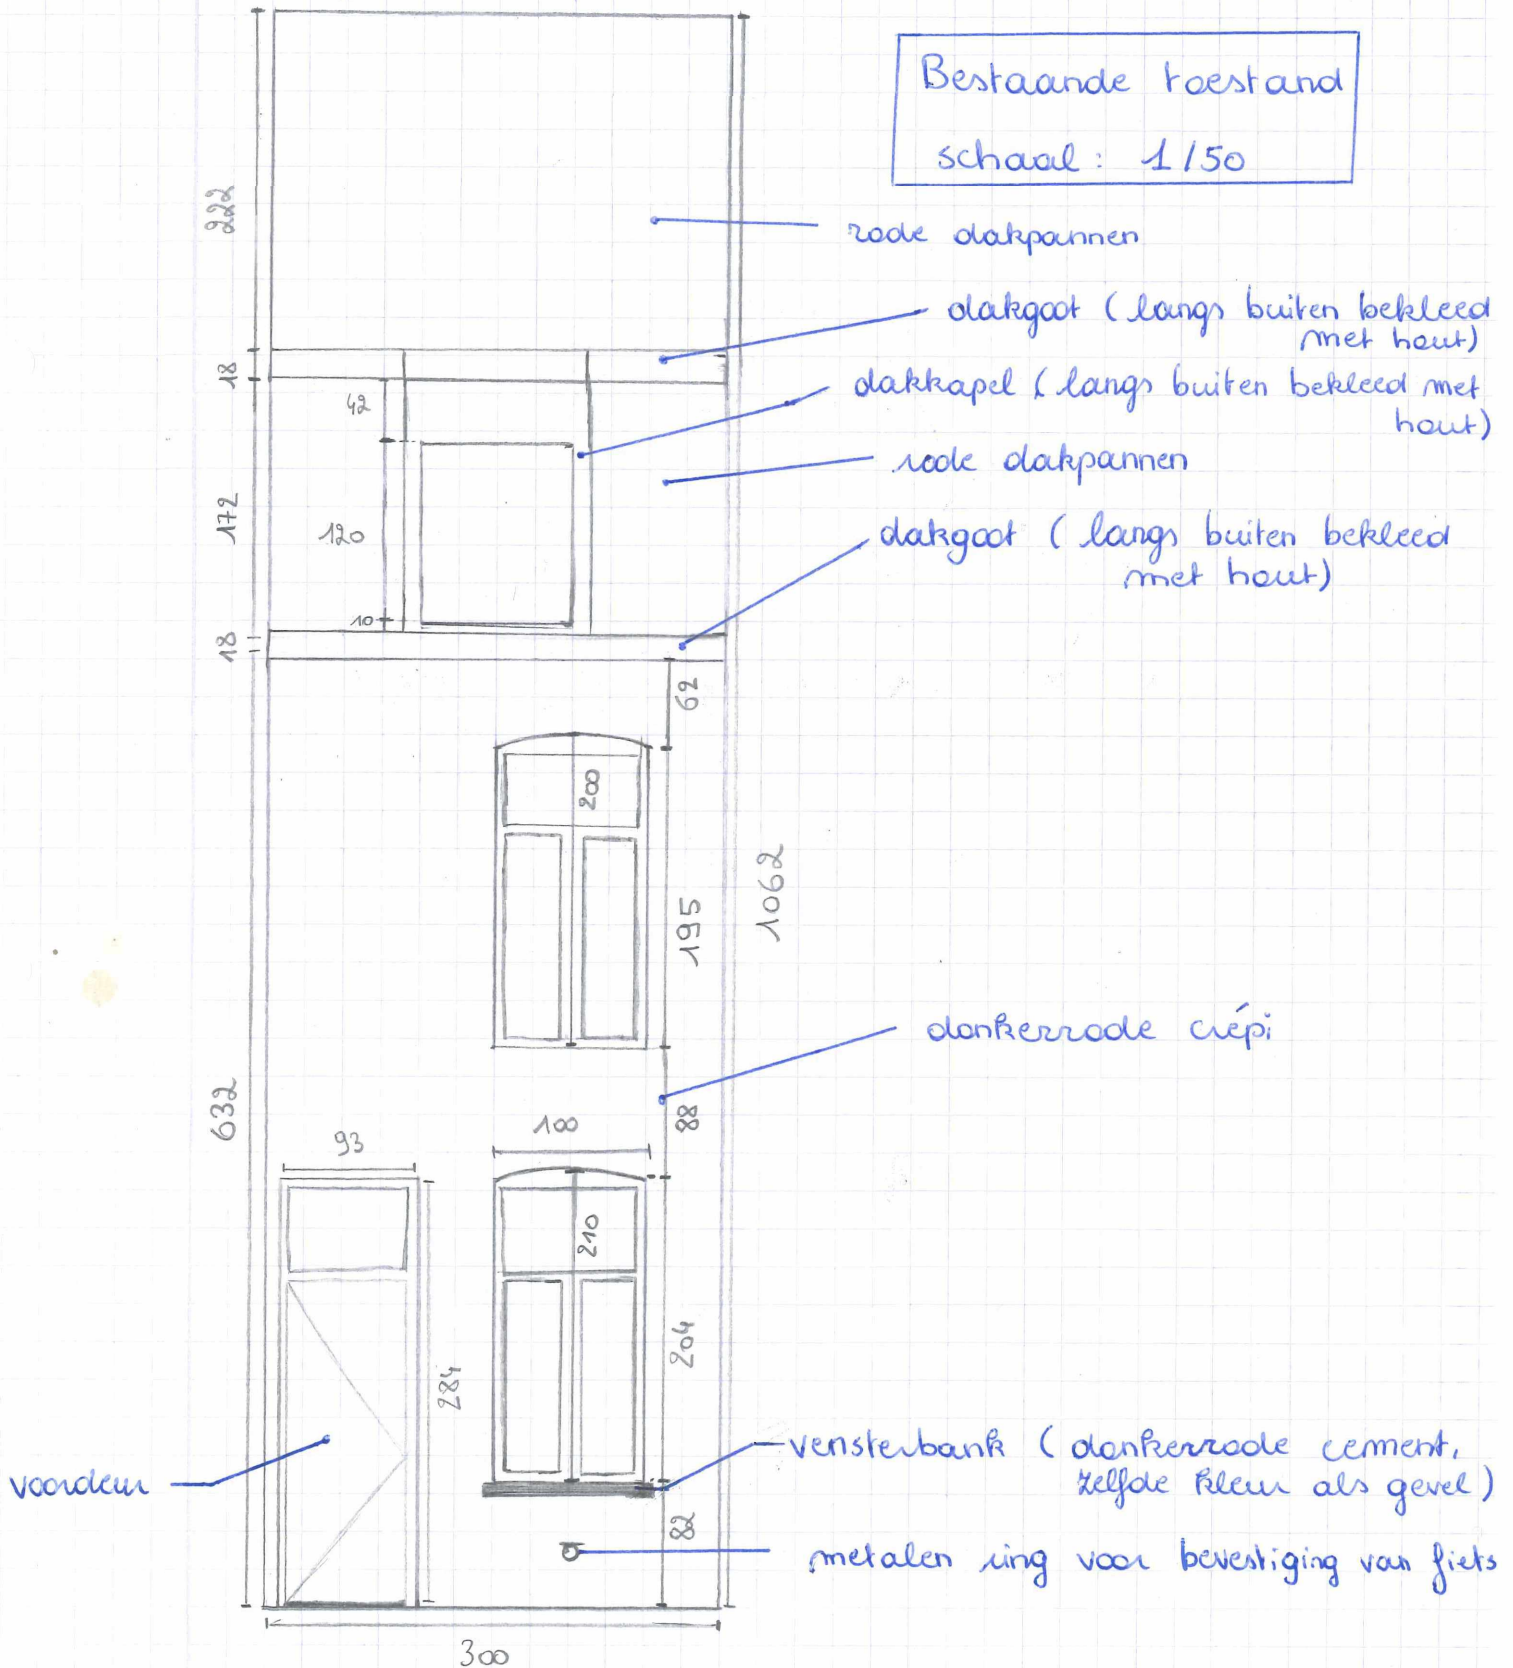 Bestaande toestand
schaal: 1/50
222
rode dakpannen
dakgoot (langs buiten bekleed
met hout)
18
dakkapel (langs buiten bekleed met
hout)
42
rode dakpannen
172
120
dakgoot (langs buiten bekleed
met hout)
10
18
62
200
195
1062
donkerrode crépi
632
88
100
93
210
204
284
vensterbank (donkerrode cement,
zelfde kleur als gevel)
voordeur
82
metalen ring voor bevestiging van fiets
300